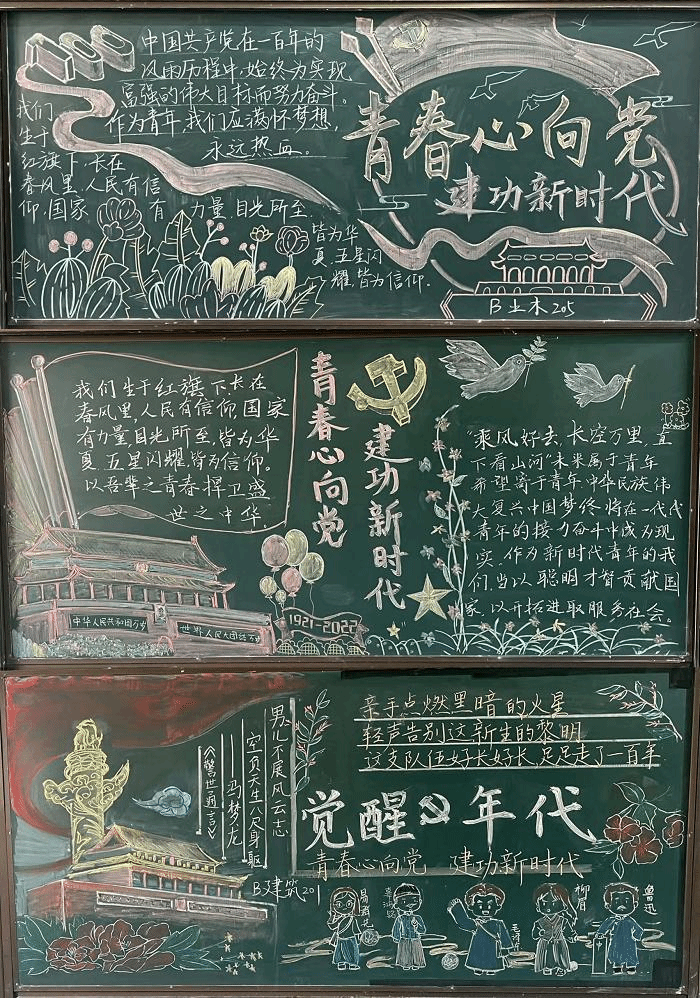 100
中国共产党在一百年的
风雨历程中,始终为实现
富强的伟大目标而努力奋斗。
作为青年,我们应满怀梦想,
永远热血。
我们
生于
红旗下,长在
春风里,人民有信
仰,国家 有 力量,目光所至,
皆为华
夏,五星闪
耀,皆为信仰.
青春心向党
建功新时代
B土木205
我们生于红旗下,长在
春风里,人民有信仰,国家
有力量,目光所至,皆为华
夏,五星闪耀,皆为信仰。
以吾辈之青春捍卫盛
世之中华
中华人民共和国万岁
世界人民大团结万岁
青春心向党
建功新时代
1921-2022
"乘风好去,长空万里,直
下看山河"未来属于青年
希望寄于青年,中华民族伟
大复兴中国梦终将在一代代
青年的接力奋斗中成为现
实。作为新时代青年的我
们,当以聪明才智贡献国
家,以开拓进取服务社会。
男儿不展风云志
空负天生八尺身躯
——冯梦龙
《警世通言》
B建筑201
亲手点燃黑暗的火星
轻声告别这新生的黎明
这支队伍好长好长,足足走了一百年
觉醒年代
青春心向党 建功新时代
柳眉
鲁迅